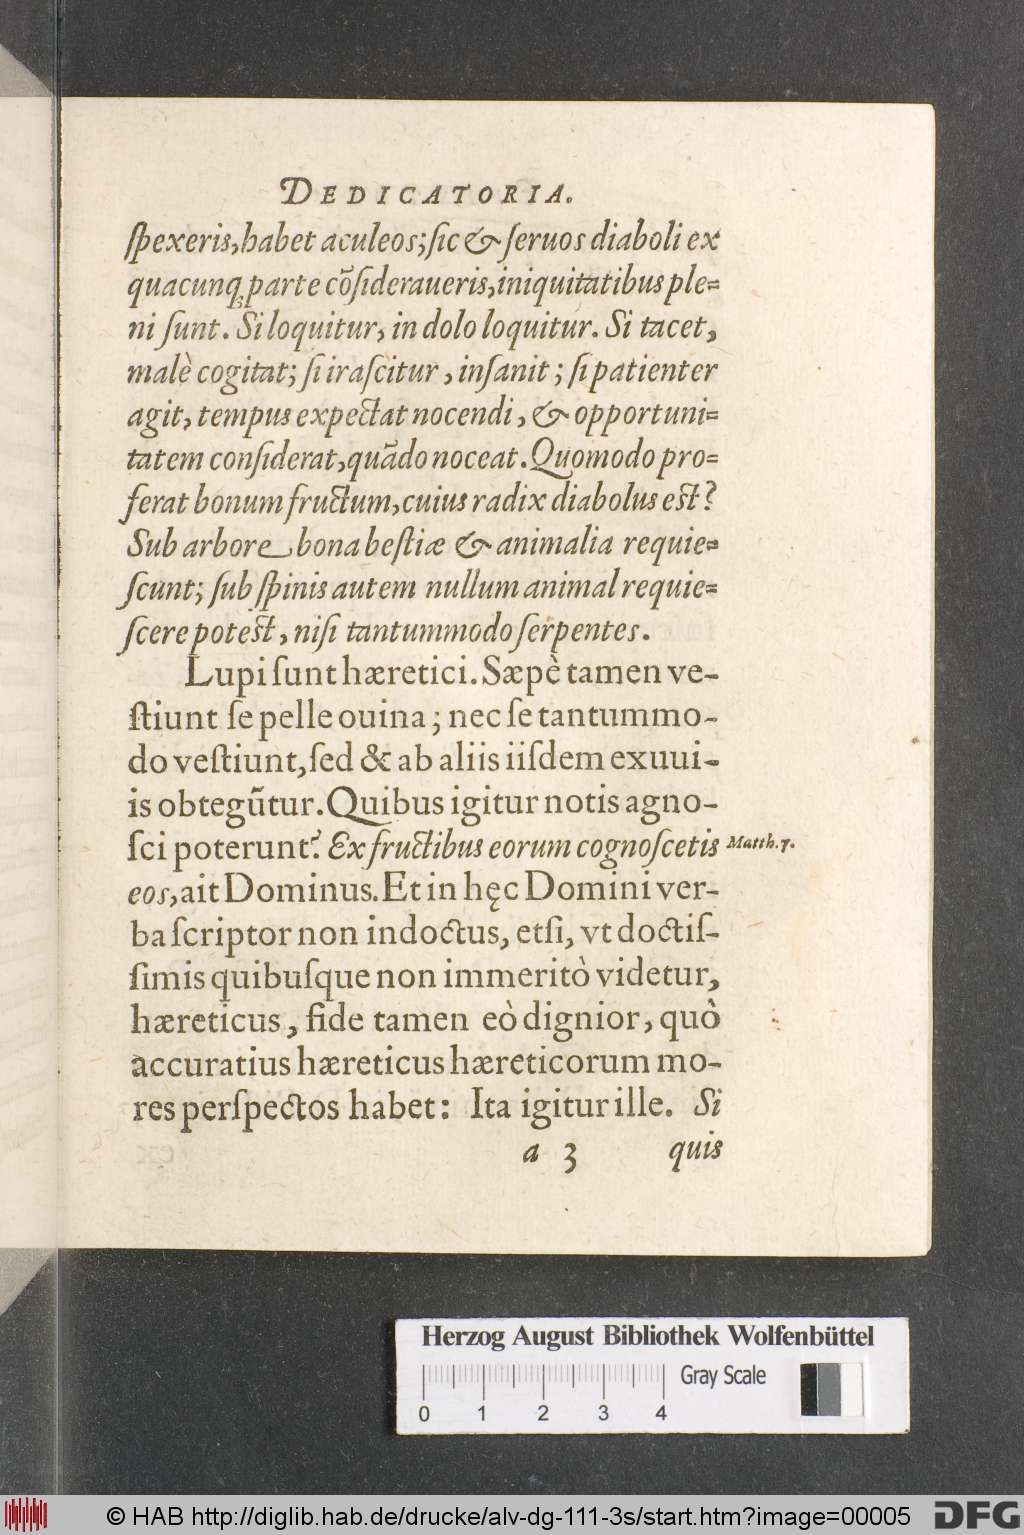 DEDICATORIA.
ſpexeris, habet aculeos; ſic & ſeruos diaboli ex
quacunq; parte cõſideraueris, iniquitatibus ple=
ni ſunt. Si loquitur, in dolo loquitur. Si tacet,
malè cogitat; ſi iraſcitur, inſanit; ſi patienter
agit, tempus expectat nocendi, & opportuni=
tatem conſiderat, quãdo noceat. Quomodo pro=
ferat bonum fructum, cuius radix diabolus est?
Sub arbore bona beſtiæ & animalia requie=
ſcunt; ſub ſpinis autem nullum animal requie=
ſcere potest, niſi tantummodo ſerpentes.
Lupi ſunt hæretici. Sæpè tamen ve-
ſtiunt ſe pelle ouina; nec ſe tantummo-
do veſtiunt, ſed & ab aliis iiſdem exuui-
is obtegũtur. Quibus igitur notis agno-
ſci poterunt? Ex fructibus eorum cognoſcetis
Matth. 7.
eos, ait Dominus. Et in hęc Domini ver-
ba ſcriptor non indoctus, etſi, vt doctiſ-
ſimis quibuſque non immeritò videtur,
hæreticus, fide tamen eò dignior, quò
accuratius hæreticus hæreticorum mo-
res perſpectos habet: Ita igitur ille. Si
a 3 quis
Herzog August Bibliothek Wolfenbüttel
Gray Scale
0 1 2 3 4
© HAB http://diglib.hab.de/drucke/alv-dg-111-3s/start.htm?image=00005
DFG